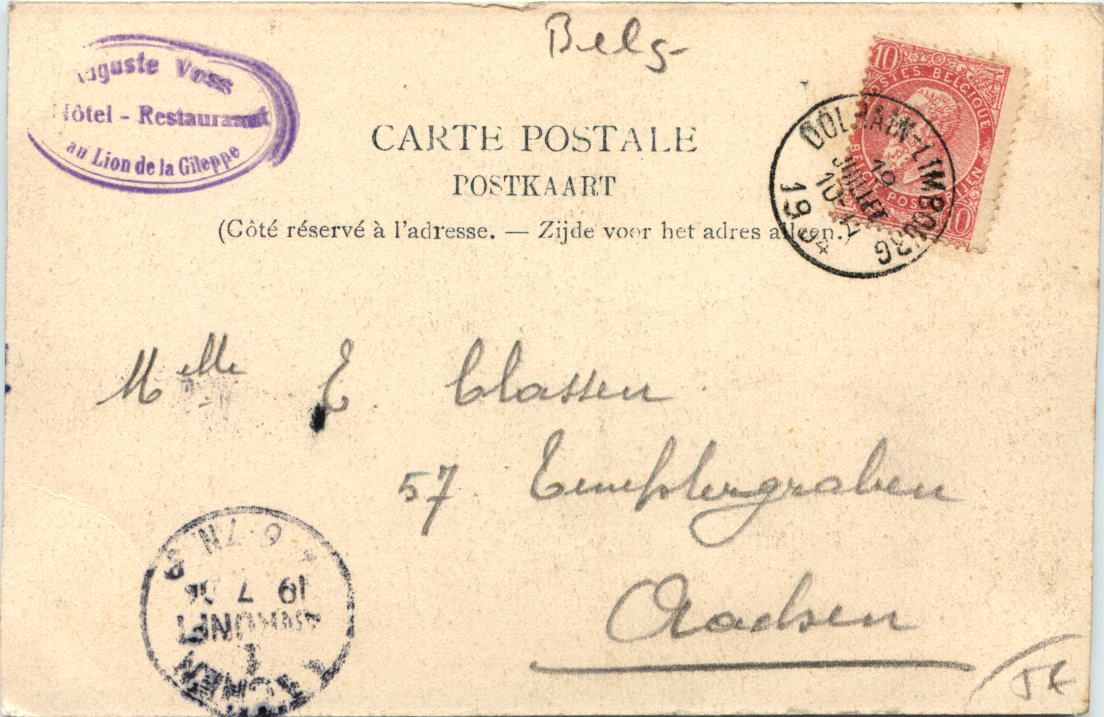 Belg
Auguste Voss
Hôtel - Restaurant
au Lion de la Gileppe
CARTE POSTALE
POSTKAART
(Côté réservé à l'adresse. — Zijde voor het adres alleen.)
10
POSTES BELGIQUE
BELGIË POSTERIJEN
10
DOLHAIN-LIMBOURG
19
JUILLET
10-
1904
Melle E. Classen
57 Templergraben
Aachen
AACHEN
1
ANKUNFT
19 7 04
6-7N